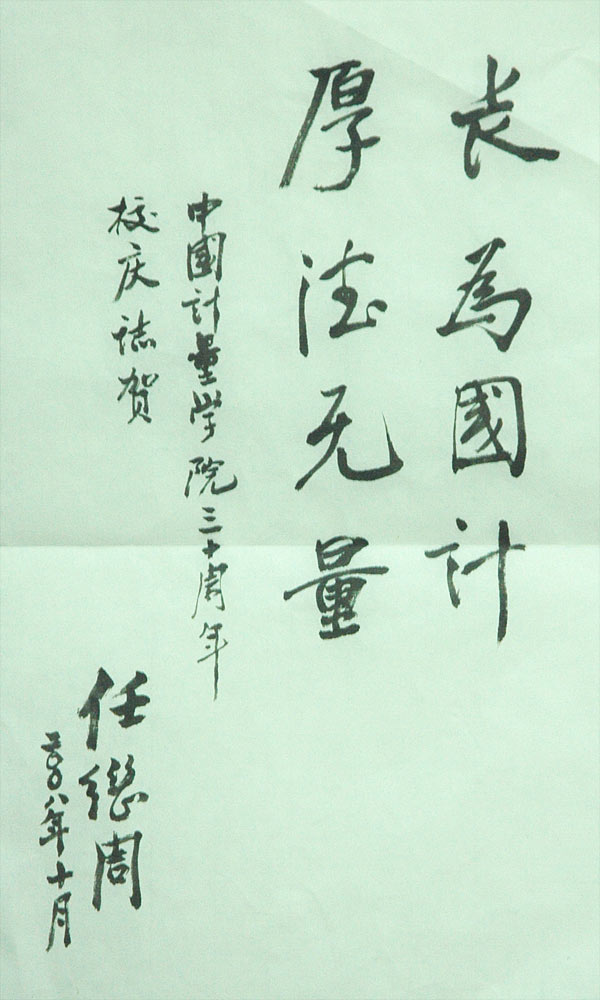 長為國計
厚德无量
中國计量学院三十周年
校庆誌贺
任继周
二〇〇八年十月